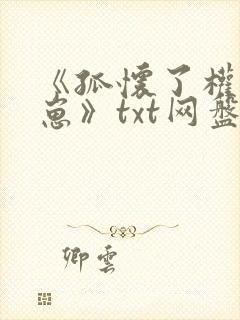 《孤懷了權
崽》txt网盤
卿雲